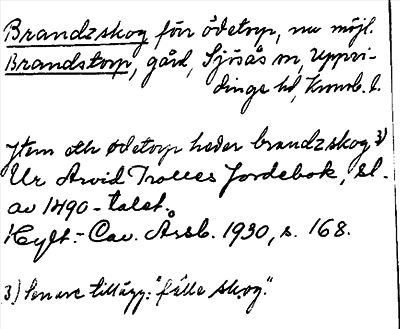 Brandzskog förr ödetorp, nu möjl.
Brandstorp, gård, Sjösås sn, Uppvi-
dinge hd, Kronob. l.
Jtem eth ødetorp heder brandzskog 3)
Ur Arvid Trolles Jordebok, sl.
av 1490-talet.
Hylt.-Cav. Årsb. 1930, s. 168.
3) Senare tillägg: "fälle skog".